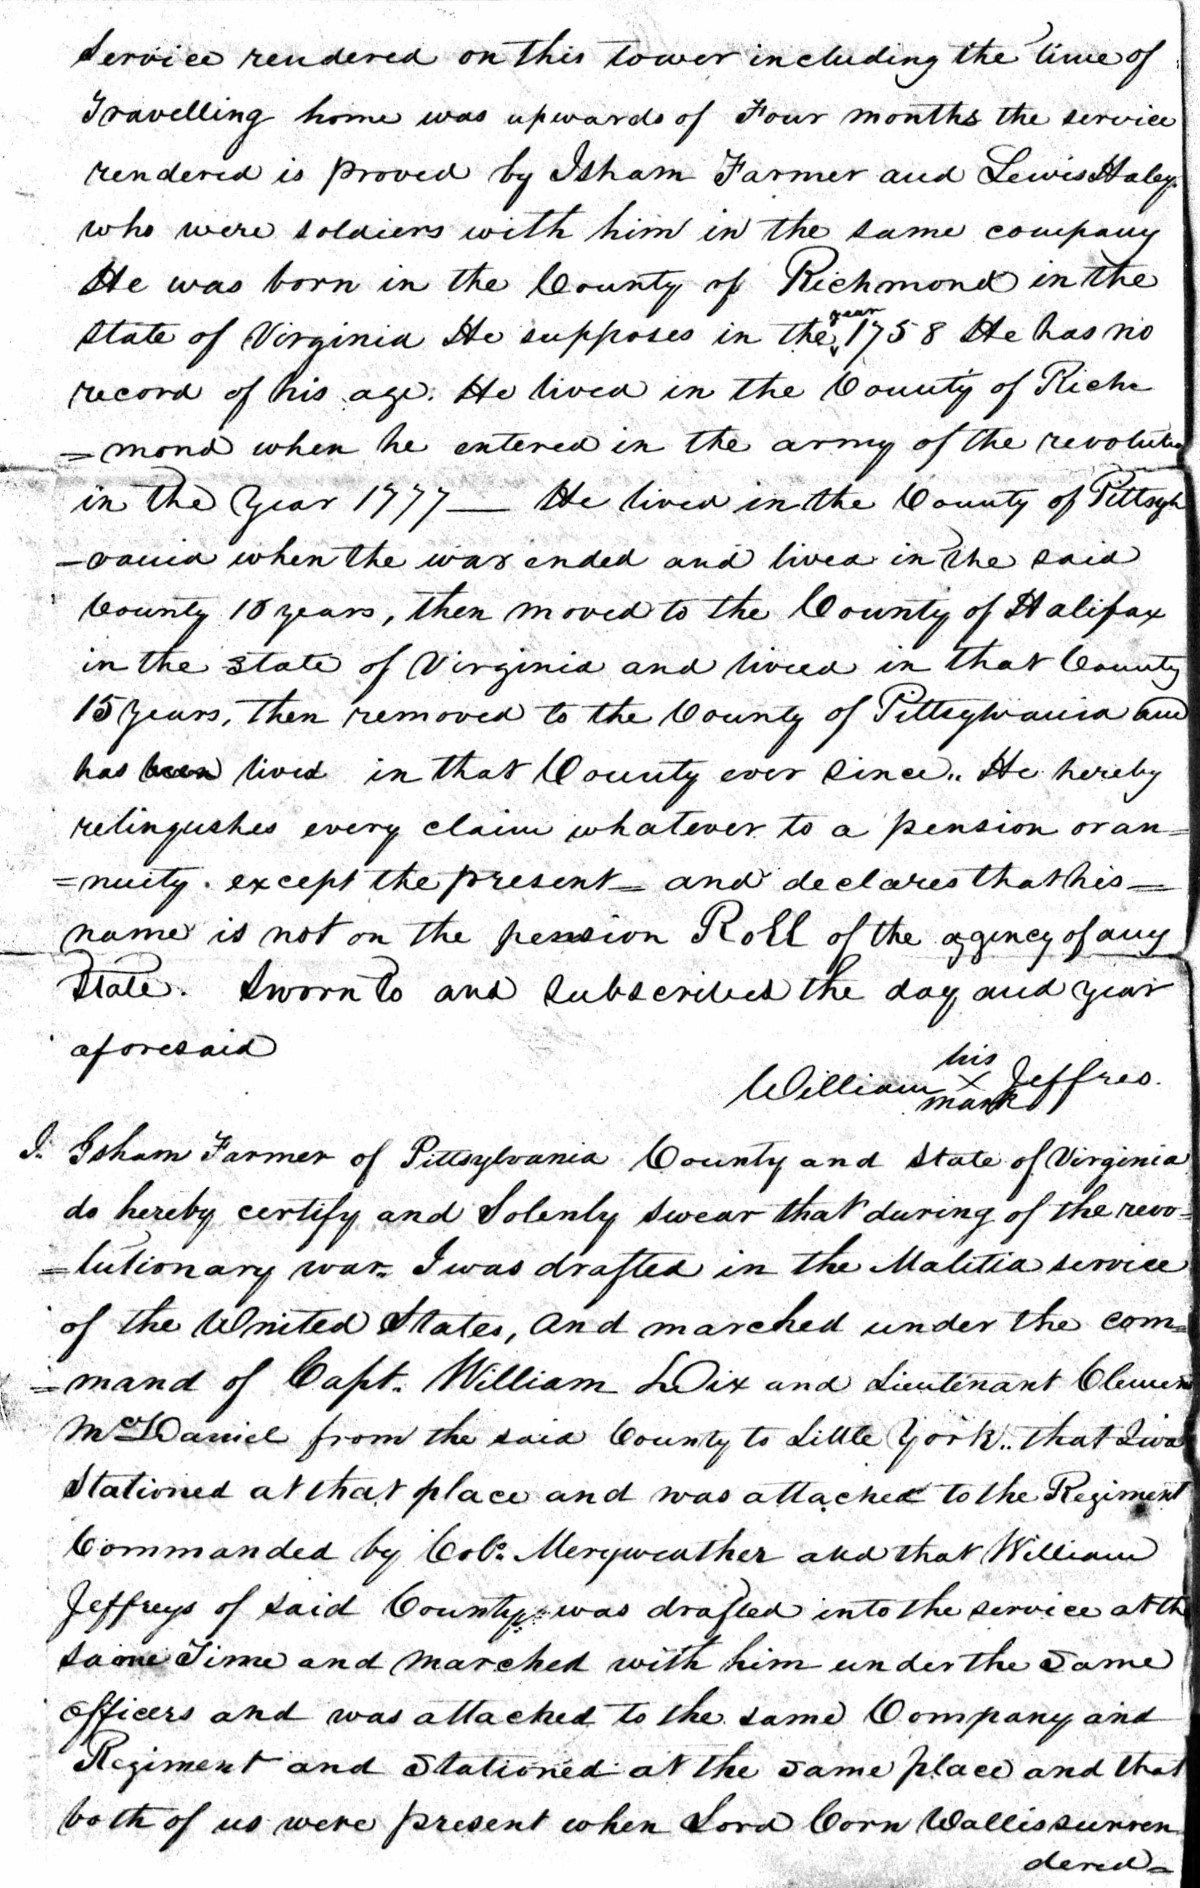 Service rendered on this tower including the time of
Travelling home was upwards of Four months the service
rendered is proved by Isham Farmer and Lewis Haley
who were soldiers with him in the same company
He was born in the County of Richmond in the
State of Virginia He supposes in the year 1758 He has no
record of his age. He lived in the County of Rich
=mond when he entered in the army of the revolution
in the Year 1777— He lived in the County of Pittsyl
-vania when the war ended and lived in the said
County 18 years, then moved to the County of Halifax
in the state of Virginia and lived in that County
15 Years, then removed to the County of Pittsylvania and
has been lived in that County ever since.. He hereby
relinquishes every claim whatever to a pension or an=
=nuity. except the present= and declares that his=
name is not on the pension Roll of the agency of any
State. Sworn to and subscribed the day and year
aforesaid
his
William X Jeffres.
mark
I. Isham Farmer of Pittsylvania County and State of Virginia
do hereby certify and Solenly swear that during of the revo=
=lutionary war. I was drafted in the Malitia service
of the United States, and marched under the com=
=mand of Capt. William Dix and Lieutenant Clemen
McDaniel from the said County to Little York.. that I was
Stationed at that place and was attached to the Regiment
Commanded by Colo. Meryweather and that William
Jeffreys of said County was drafted into the service at the
same Time and marched with him under the same
officers and was attached to the same Company and
Regiment and stationed at the same place and that
both of us were present when Lord Corn Wallis surren
dered=